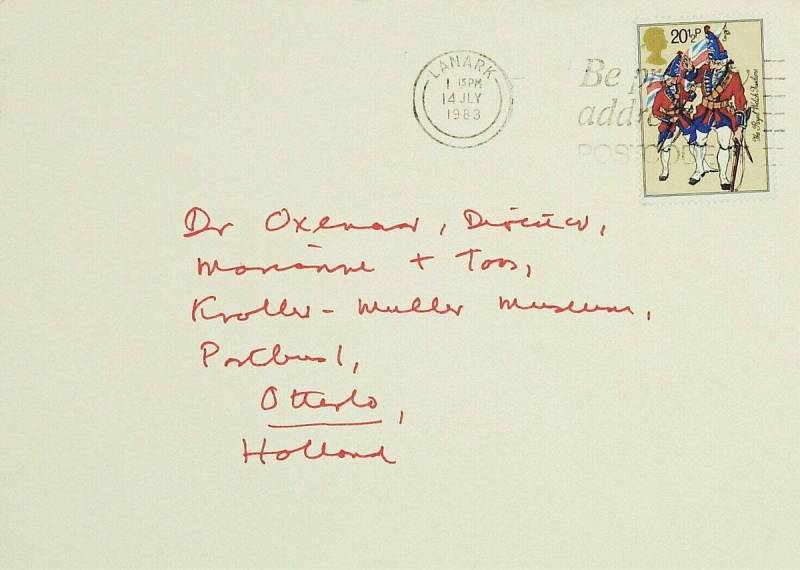 LANARK
1 15PM
14 JLY
1983
20½P
The Royal Welch Fusiliers
Be pr
addre
POSTCODE
Dr Oxenaar, Director,
Marianne + Toos,
Kroller-Muller Museum,
Postbus 1,
Otterlo,
Holland